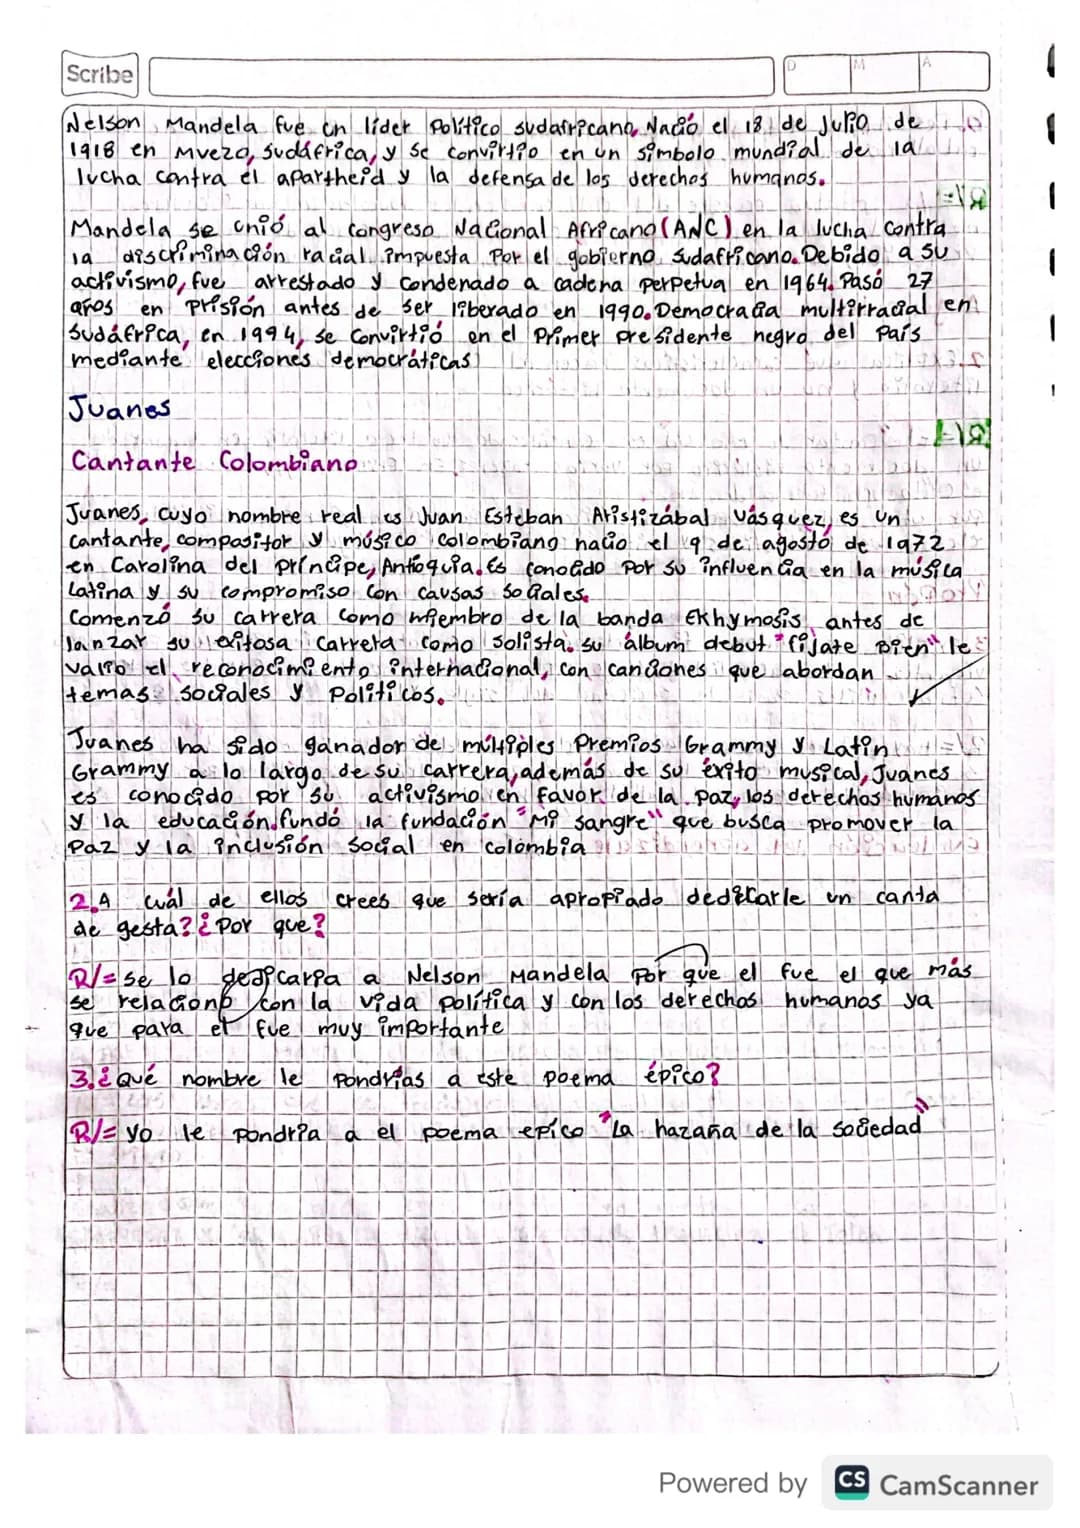 Scribe
D M A
Nelson Mandela fue un líder Político sudafricano, Nació el 18 de Julio de
1918 en Mvezo, Sudáfrica, y se convirtio en un símbolo mundial de la
lucha contra el apartheid y la defensa de los derechos humanos.
Mandela se unió al congreso Nacional Africano (ANC) en la lucha contra
la discriminación racial impuesta Por el gobierno sudafricano. Debido a su
activismo, fue arrestado y condenado a cadena perpetua en 1964. Pasó 27
años en prisión antes de ser liberado en 1990. Democracia multirracial en
Sudáfrica, en 1994, se Convirtió en el Primer presidente negro del País
mediante elecciones democráticas
Juanes
Cantante Colombiano
Juanes, cuyo nombre real es Juan Esteban Aristizábal Vásquez, es un
cantante, compositor y músico colombiano nacio el 9 de agosto de 1972
en Carolina del príncipe, Antioquia. Es conocido Por su influencia en la música
Latina y su compromiso con causas sociales.
Comenzó su carrera como miembro de la banda Ekhymosis antes de
lanzar su exitosa carrera como solista. su álbum debut "fíjate Bien" le
valio el reconocimiento internacional, con canciones que abordan
temas sociales y Politicos.
Juanes ha sido ganador de múltiples Premios Grammy y Latin
Grammy a lo largo de su carrera, además de su éxito musical, Juanes
es conocido por su activismo en favor de la paz, los derechos humanos
y la educación. fundó la fundación "Mi sangre" que busca promover la
Paz y la inclusión social en colombia
2. A cuál de ellos crees que sería apropiado dedicarle un canta
de gesta? ¿Por que?
R/= se lo dedicaria a Nelson Mandela Por que el fue el que más
se relaciono con la vida política y con los derechos humanos ya
que para el fue muy importante
3. ¿Qué nombre le pondrías a este poema épico?
R/= yo le pondria a el poema epico "La hazaña de la sociedad"
Powered by CS CamScanner